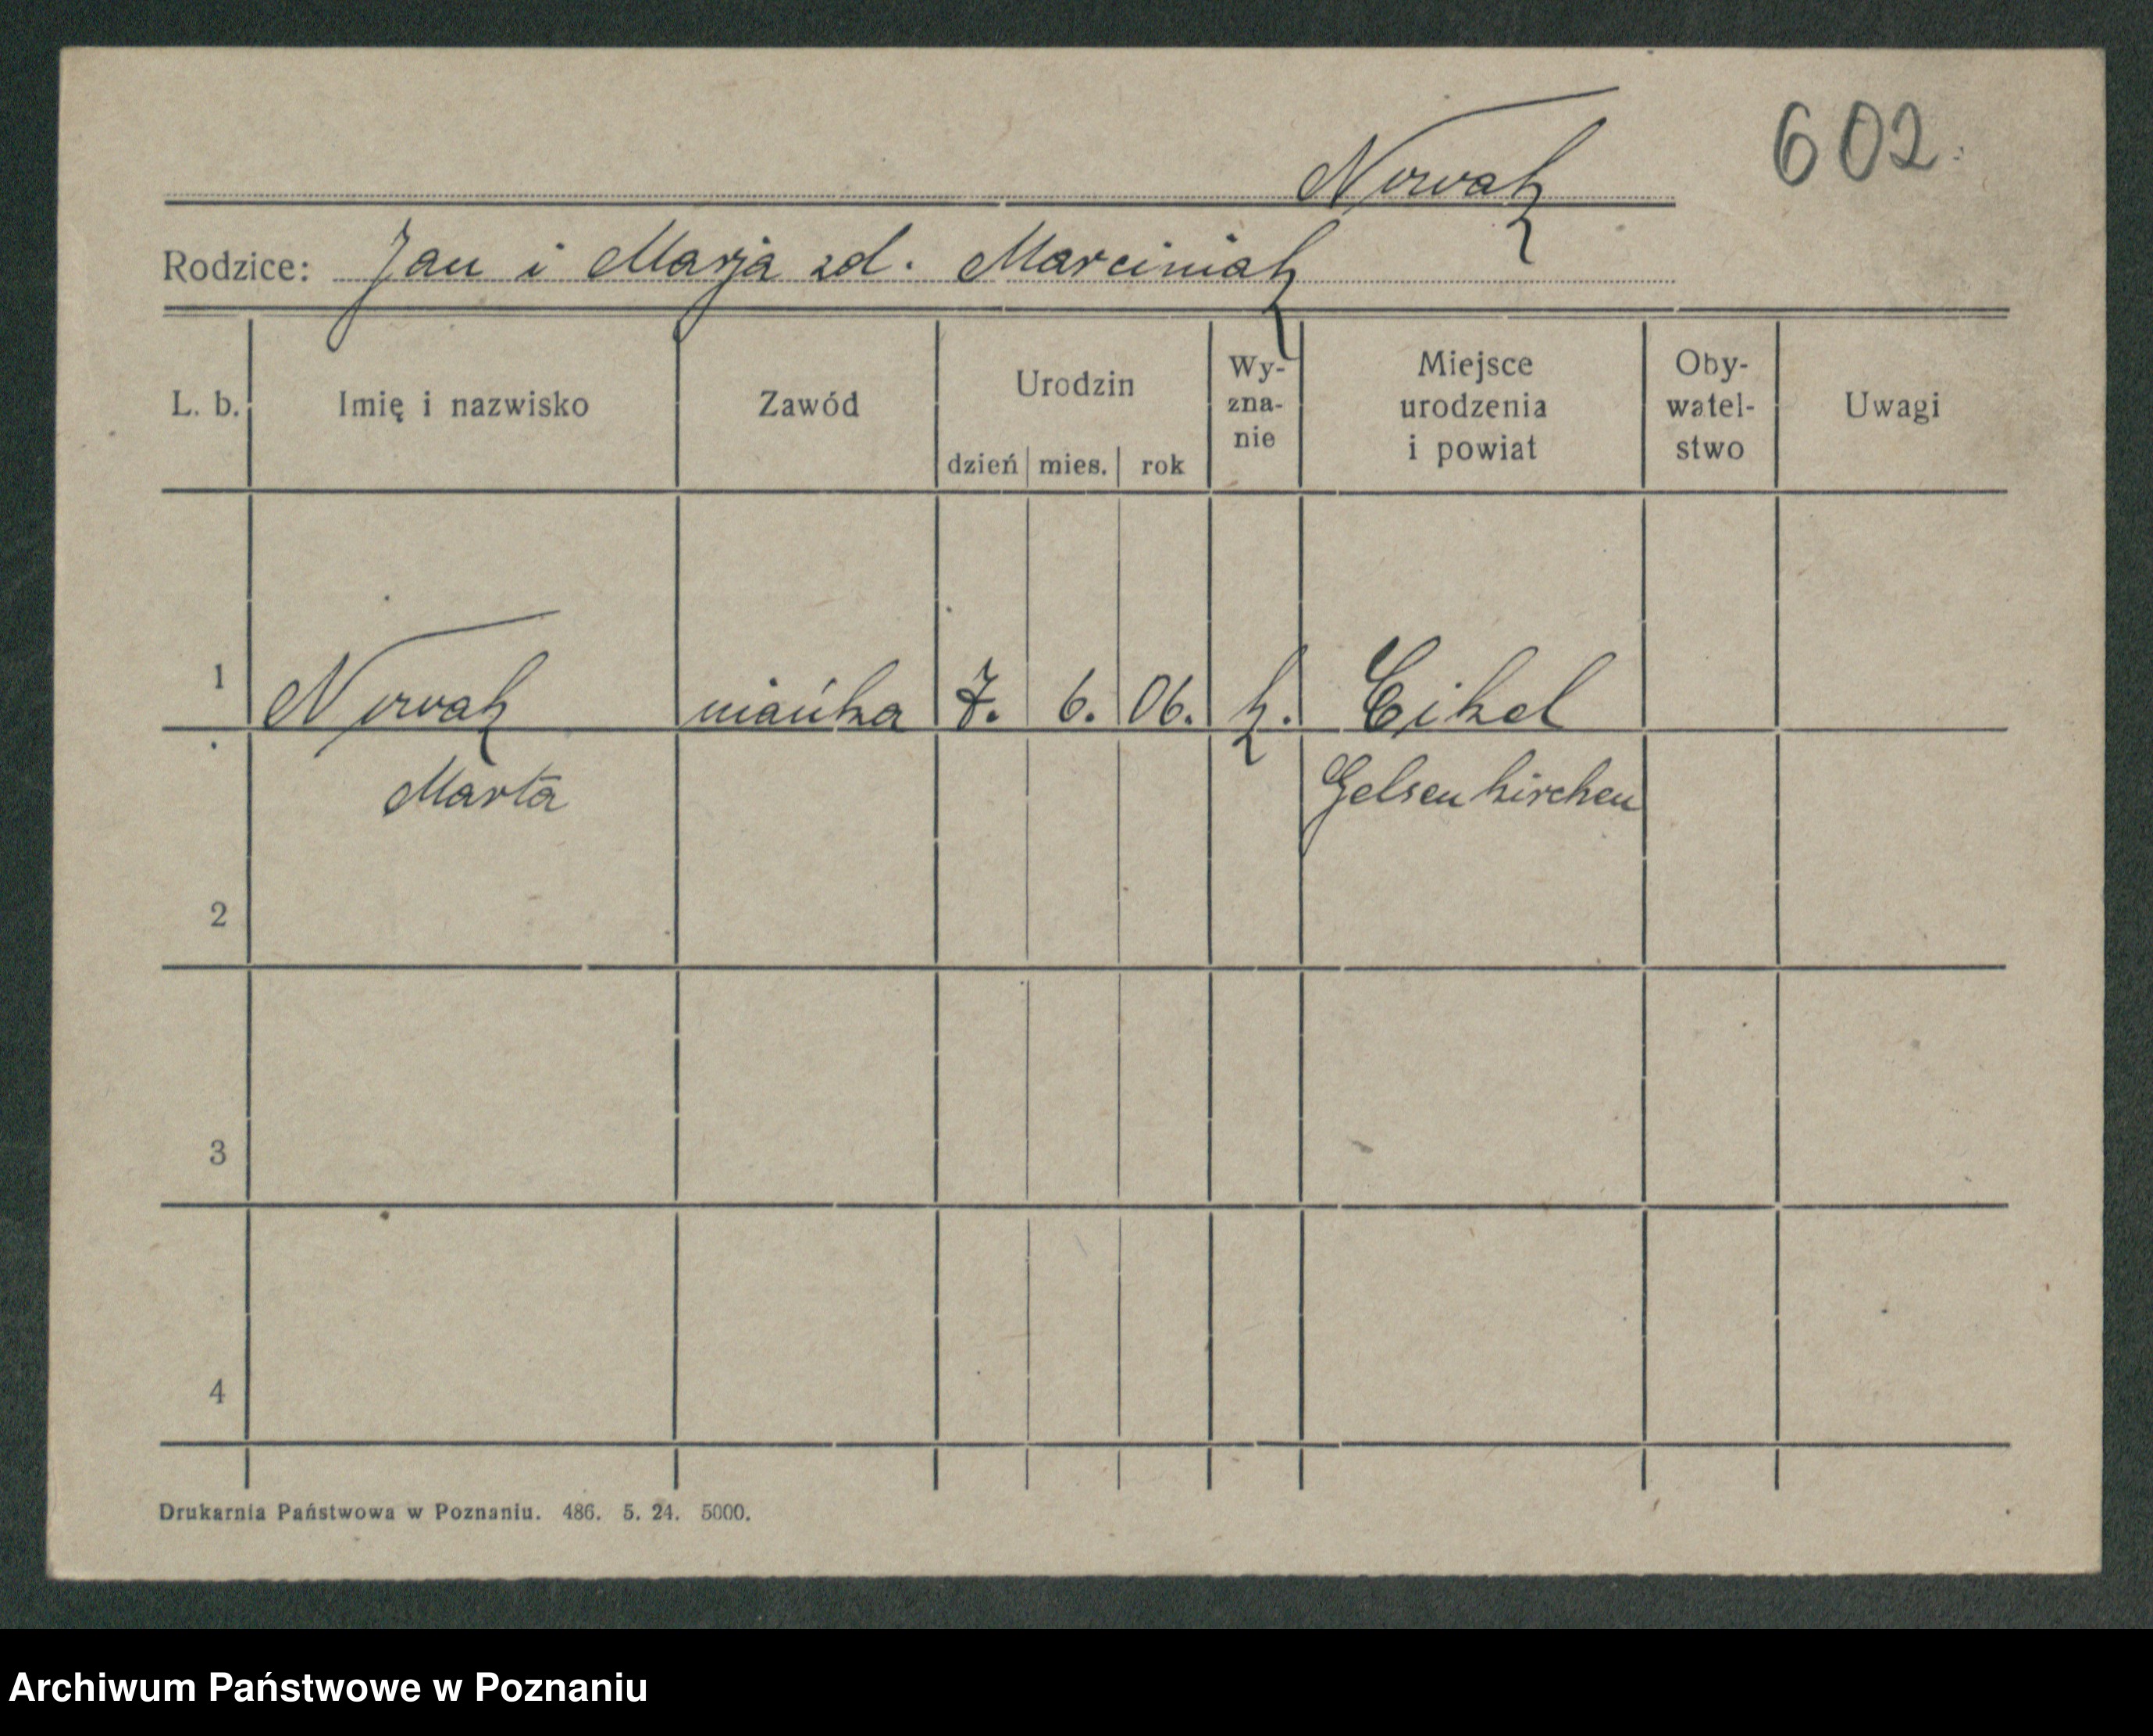 602.
Nowak
Rodzice: Jan i Marja zd. Marciniak
L. b. Imię i nazwisko Zawód Urodzin dzień mies. rok Wy-zna-nie Miejsce urodzenia i powiat Oby-watel-stwo Uwagi
1 Nowak niańka 7. 6. 06. k. Eikel
Marta Gelsenkirchen
2
3
4
Drukarnia Państwowa w Poznaniu. 486. 5. 24. 5000.
Archiwum Państwowe w Poznaniu